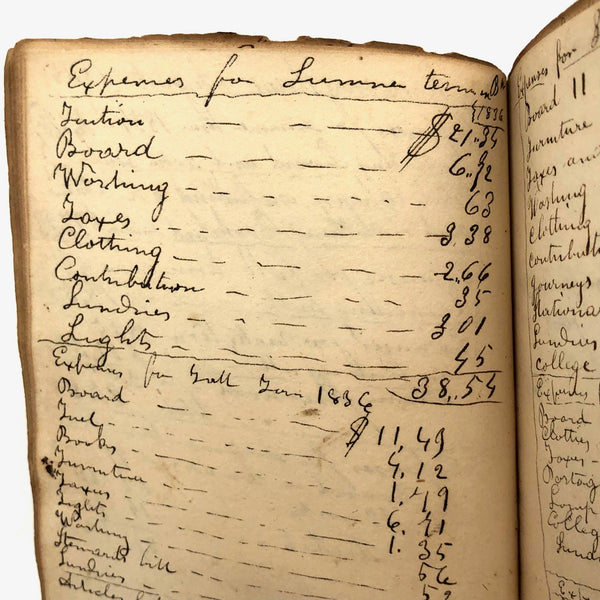 Expenses for Summer term
1836
Tuition $21.34
Board 6.72
Washing 63
Taxes 3.38
Clothing 2,66
Contribution 35
Sundries 3 01
Lights 45
38,.54
Expenses for Fall Term 1836
Board $11,49
Fuel 4,12
Books 1.49
Furniture 6.71
Taxes 1. 35
Lights 56
Washing
Stewards bill
Sundries
Articles
Expenses for
Board 11
Furniture
Taxes and
Washing
Clothing
Contribut
Journeys
Stationa
Sundries
College
Expenses
Board
Clothes
Taxes
Postag
College
Sund